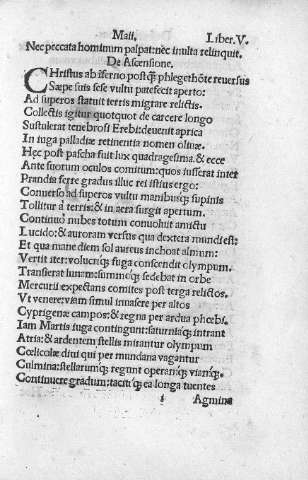 Maii. Liber.V.
Nec peccata hominum palpat: nec inulta relinquit.
De Ascensione.
CHristus ab īferno postq̃ phlegethōte reuersus
Sæpe suis sese vultu patefecit aperto:
Ad superos statuit terris migrare relictis.
Collectis igitur quotquot de carcere longo
Sustulerat tenebrosi Erebi: deuenit aprica
In iuga palladiæ retinentia nomen oliuæ.
Hęc post pascha fuit lux quadragesima. & ecce
Ante suorum oculos comitum: quos iusserat inter
Prandia ferre gradus illuc rei istius ergo:
Conuerso ad superos vultu manibusq̃ supinis
Tollitur a terris: & in aera surgit apertum.
Continuo nubes totum conuoluit amictu
Lucido: & auroram versus qua dextera mundi est:
Et qua mane diem sol aureus inchoat almum:
Vertit iter: volucriq̃ fuga conscendit olympum.
Transierat lunam: summoq̃ sedebat in orbe
Mercurii expectans comites post terga relictos.
Vt venere: viam simul inuasere per altos
Cyprigenæ campos: & regna per ardua phœbi.
Iam Martis iuga contingunt: saturniaq̃ intrant
Atria: & ardentem stellis mirantur olympum
Cœlicolæ diui qui per mundana vagantur
Culmina: stellarumq̃ regunt operaq̃ viasq̃.
Continuere gradum: tacitiq̃ ea longa tuentes
i Agmina